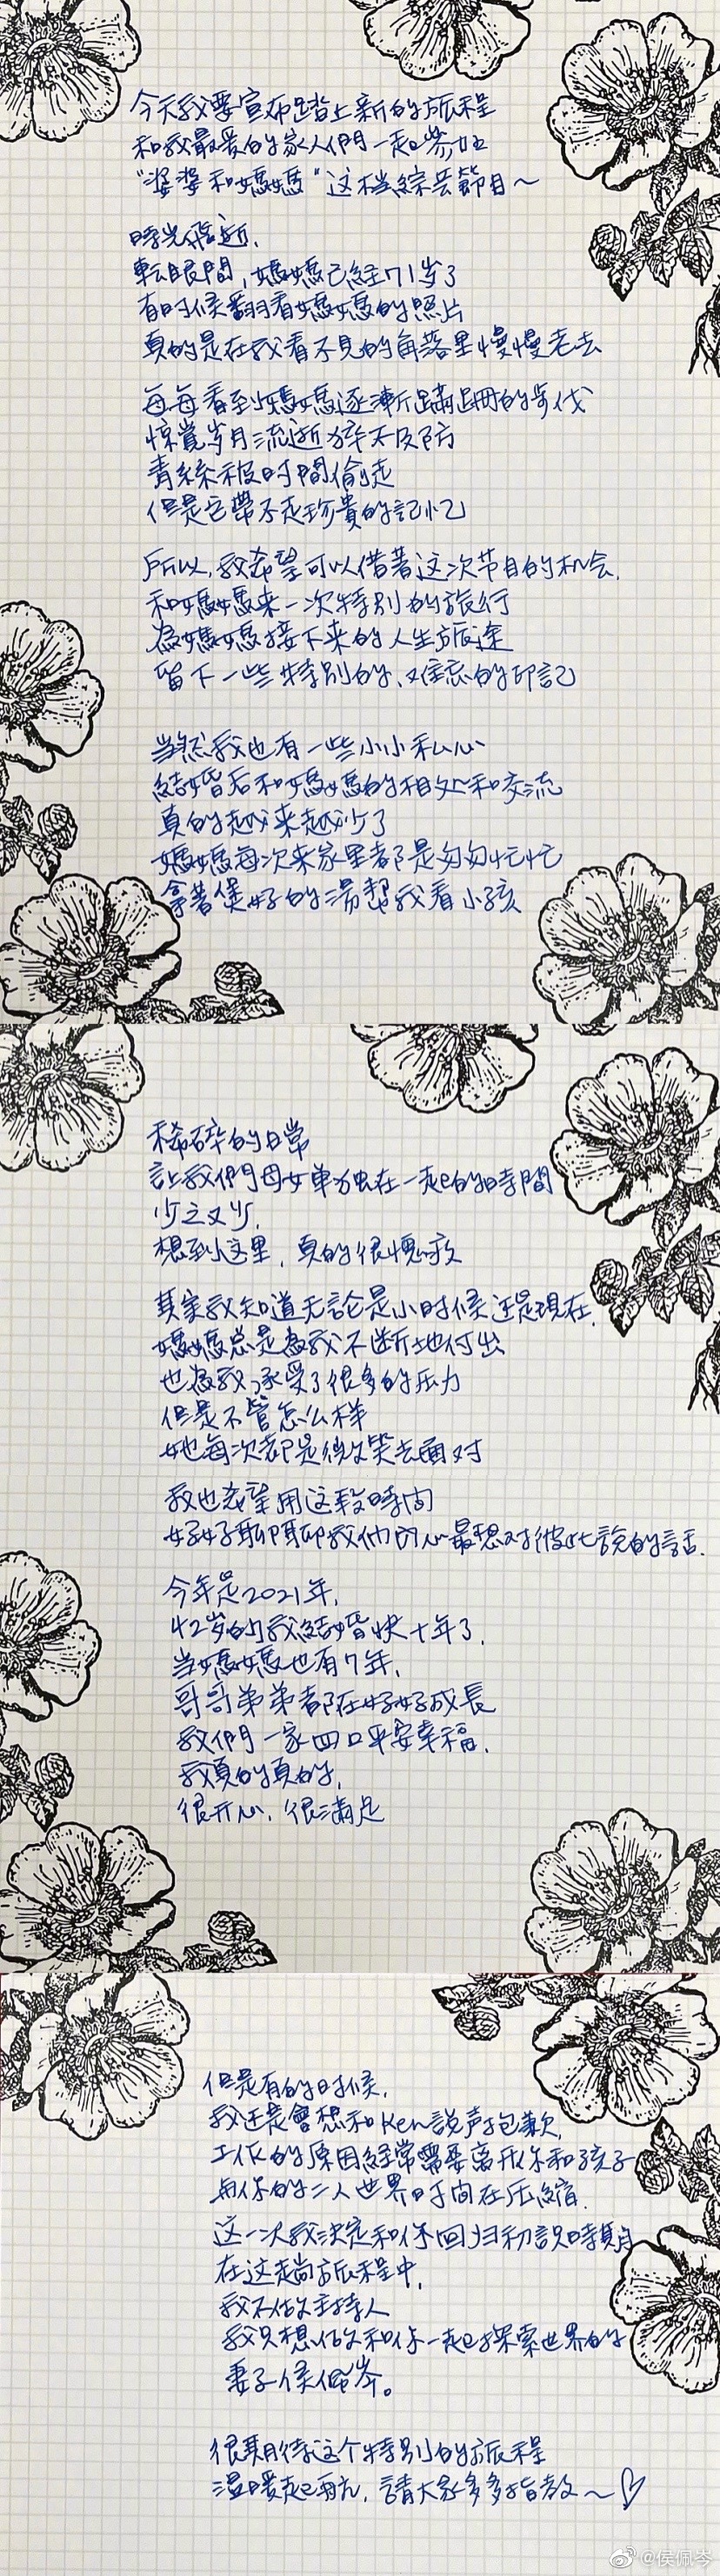 今天我要宣布踏上新的旅程
和我最爱的家人們一起参加
“婆婆和媽媽”这档綜艺節目～
時光飛逝,
転眼間,媽媽已経71岁了
有时候翻看媽媽的照片
真的是在我看不見的角落里慢慢老去
每每看到媽媽逐漸蹒跚的步伐
惊覚岁月流逝猝不及防
青絲被时間偷走
但是它帶不走珍貴的記忆
所以,我希望可以借着这次节目的机会,
和媽媽来一次特别的旅行
為媽媽接下来的人生旅途
留下一些特别的、难忘的印記
当然我也有一些小小私心
結婚后和媽媽的相处和交流
真的越来越少了
媽媽每次来家里都是匆匆忙忙
拿着煲好的湯帮我看小孩
稀碎的日常
让我們母女单独在一起的時間
少之又少,
想到这里,真的很愧疚
其实我知道无論是小时候还是現在,
媽媽总是為我不断地付出
也為我承受了很多的压力
但是不管怎么样
她每次都是微笑去面对
我也希望用这段時间
好好聊聊我們内心最想对彼此説的話.
今年是2021年,
42岁的我結婚快十年了,
当媽媽也有7年,
哥哥弟弟都在好好成長
我們一家四口平安幸福,
我真的真的,
很开心,很滿足
但是有的时候,
我还是會想和Ken説声抱歉,
工作的原因経常需要离开你和孩子
与你的二人世界时间在压縮,
这一次我决定和你回归初識時期
在这趟旅程中,
我不做主持人
我只想做和你一起探索世界的
妻子侯佩岑。
很期待这个特别的旅程
温暖起航,請大家多多指教～♡
@侯佩岑